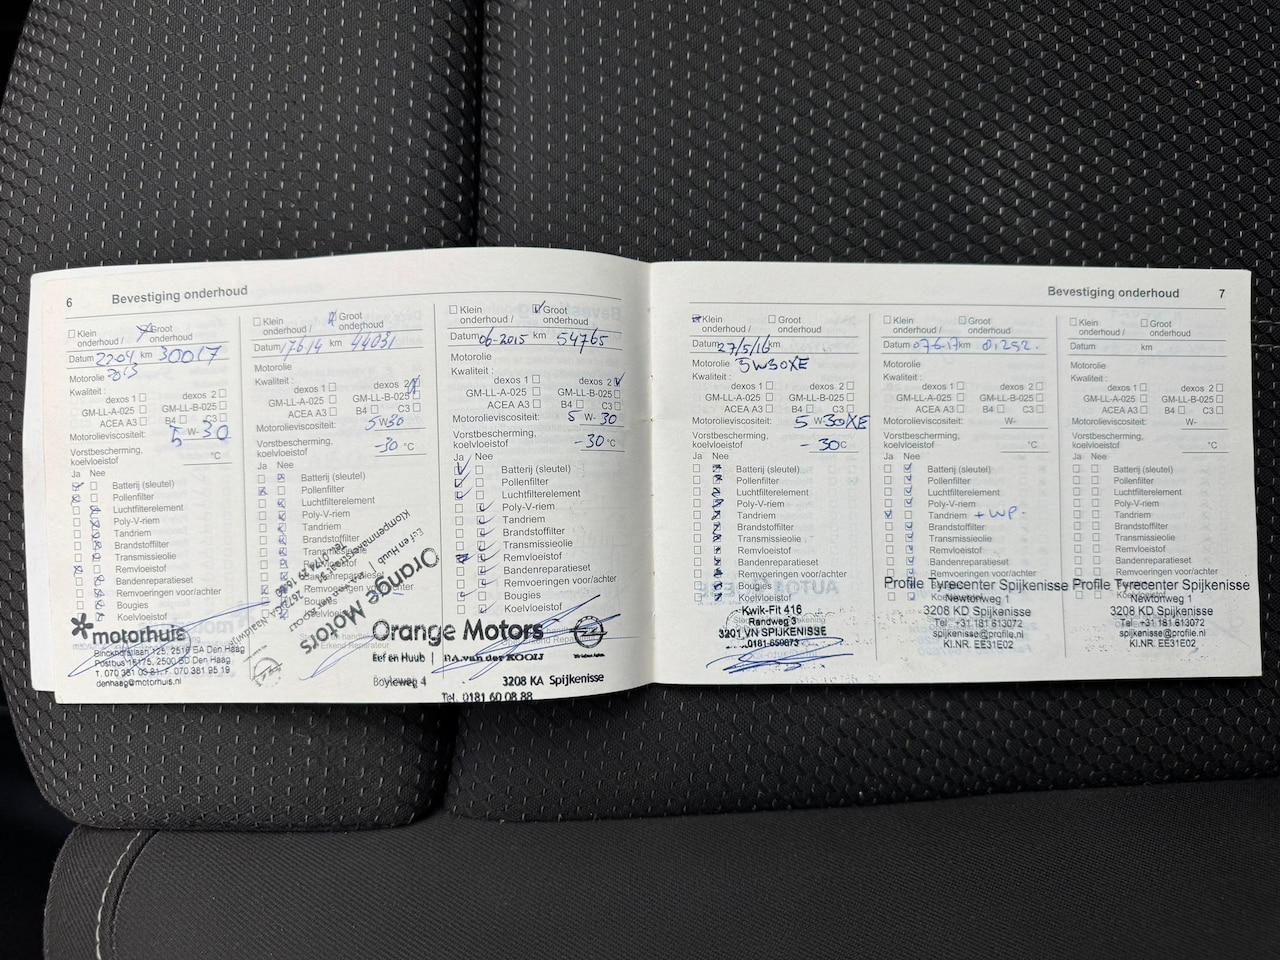 6 Bevestiging onderhoud
Klein onderhoud / Groot onderhoud
Datum 22 04 2013 km 30017
Motorolie
Kwaliteit :
dexos 1 dexos 2
GM-LL-A-025 GM-LL-B-025
ACEA A3 B4 C3
Motorolieviscositeit: 5 W- 30
Vorstbescherming, koelvloeistof °C
Ja Nee
Batterij (sleutel)
Pollenfilter
Luchtfilterelement
Poly-V-riem
Tandriem
Brandstoffilter
Transmissieolie
Remvloeistof
Bandenreparatieset
Remvoeringen voor/achter
Bougies
Koelvloeistof
motorhuis
Binckhorstlaan 125, 2516 BA Den Haag
Postbus 15175, 2500 BD Den Haag
T. 070 381 F. 070 381 95 19
denhaag@motorhuis.nl
Klein onderhoud / Groot onderhoud
Datum 17 6 14 km 44031
Motorolie
Kwaliteit :
dexos 1 dexos 2
GM-LL-A-025 GM-LL-B-025
ACEA A3 B4 C3
Motorolieviscositeit: 5 W 30
Vorstbescherming, koelvloeistof -30 °C
Ja Nee
Batterij (sleutel)
Pollenfilter
Luchtfilterelement
Poly-V-riem
Tandriem
Brandstoffilter
Transmissieolie
Remvloeistof
Bandenreparatieset
Remvoeringen
Bougies
Orange Motors
Eef en Huub
Klein onderhoud / Groot onderhoud
Datum 06-2015 km 54765
Motorolie
Kwaliteit :
dexos 1 dexos 2
GM-LL-A-025 GM-LL-B-025
ACEA A3 B4 C3
Motorolieviscositeit: 5 W- 30
Vorstbescherming, koelvloeistof -30 °C
Ja Nee
Batterij (sleutel)
Pollenfilter
Luchtfilterelement
Poly-V-riem
Tandriem
Brandstoffilter
Transmissieolie
Remvloeistof
Bandenreparatieset
Remvoeringen voor/achter
Bougies
Koelvloeistof
Orange Motors
Eef en Huub | P.A. van der KOOIJ
Boyleweg 4 3208 KA Spijkenisse
Tel. 0181 60 08 88
Bevestiging onderhoud 7
Klein onderhoud / Groot onderhoud
Datum 27/5/16 km
Motorolie 5W30XE
Kwaliteit :
dexos 1 dexos 2
GM-LL-A-025 GM-LL-B-025
ACEA A3 B4 C3
Motorolieviscositeit: 5 W- 30XE
Vorstbescherming, koelvloeistof -30 °C
Ja Nee
Batterij (sleutel)
Pollenfilter
Luchtfilterelement
Poly-V-riem
Tandriem
Brandstoffilter
Transmissieolie
Remvloeistof
Bandenreparatieset
Remvoeringen voor/achter
Bougies
Koelvloeistof
Kwik-Fit 416
Randweg 3
3201 VN SPIJKENISSE
Klein onderhoud / Groot onderhoud
Datum 07-6-17 km 81252.
Motorolie
Kwaliteit :
dexos 1 dexos 2
GM-LL-A-025 GM-LL-B-025
ACEA A3 B4 C3
Motorolieviscositeit: W-
Vorstbescherming, koelvloeistof °C
Ja Nee
Batterij (sleutel)
Pollenfilter
Luchtfilterelement
Poly-V-riem
Tandriem + WP.
Brandstoffilter
Transmissieolie
Remvloeistof
Bandenreparatieset
Remvoeringen voor/achter
Bougies
Profile Tyrecenter Spijkenisse
Newtonweg 1
3208 KD Spijkenisse
Tel. +31 181 613072
spijkenisse@profile.nl
KI.NR. EE31E02
Klein onderhoud / Groot onderhoud
Datum km
Motorolie
Kwaliteit :
dexos 1 dexos 2
GM-LL-A-025 GM-LL-B-025
ACEA A3 B4 C3
Motorolieviscositeit: W-
Vorstbescherming, koelvloeistof °C
Ja Nee
Batterij (sleutel)
Pollenfilter
Luchtfilterelement
Poly-V-riem
Tandriem
Brandstoffilter
Transmissieolie
Remvloeistof
Bandenreparatieset
Remvoeringen voor/achter
Profile Tyrecenter Spijkenisse
Newtonweg 1
3208 KD Spijkenisse
Tel. +31 181 613072
spijkenisse@profile.nl
KI.NR. EE31E02